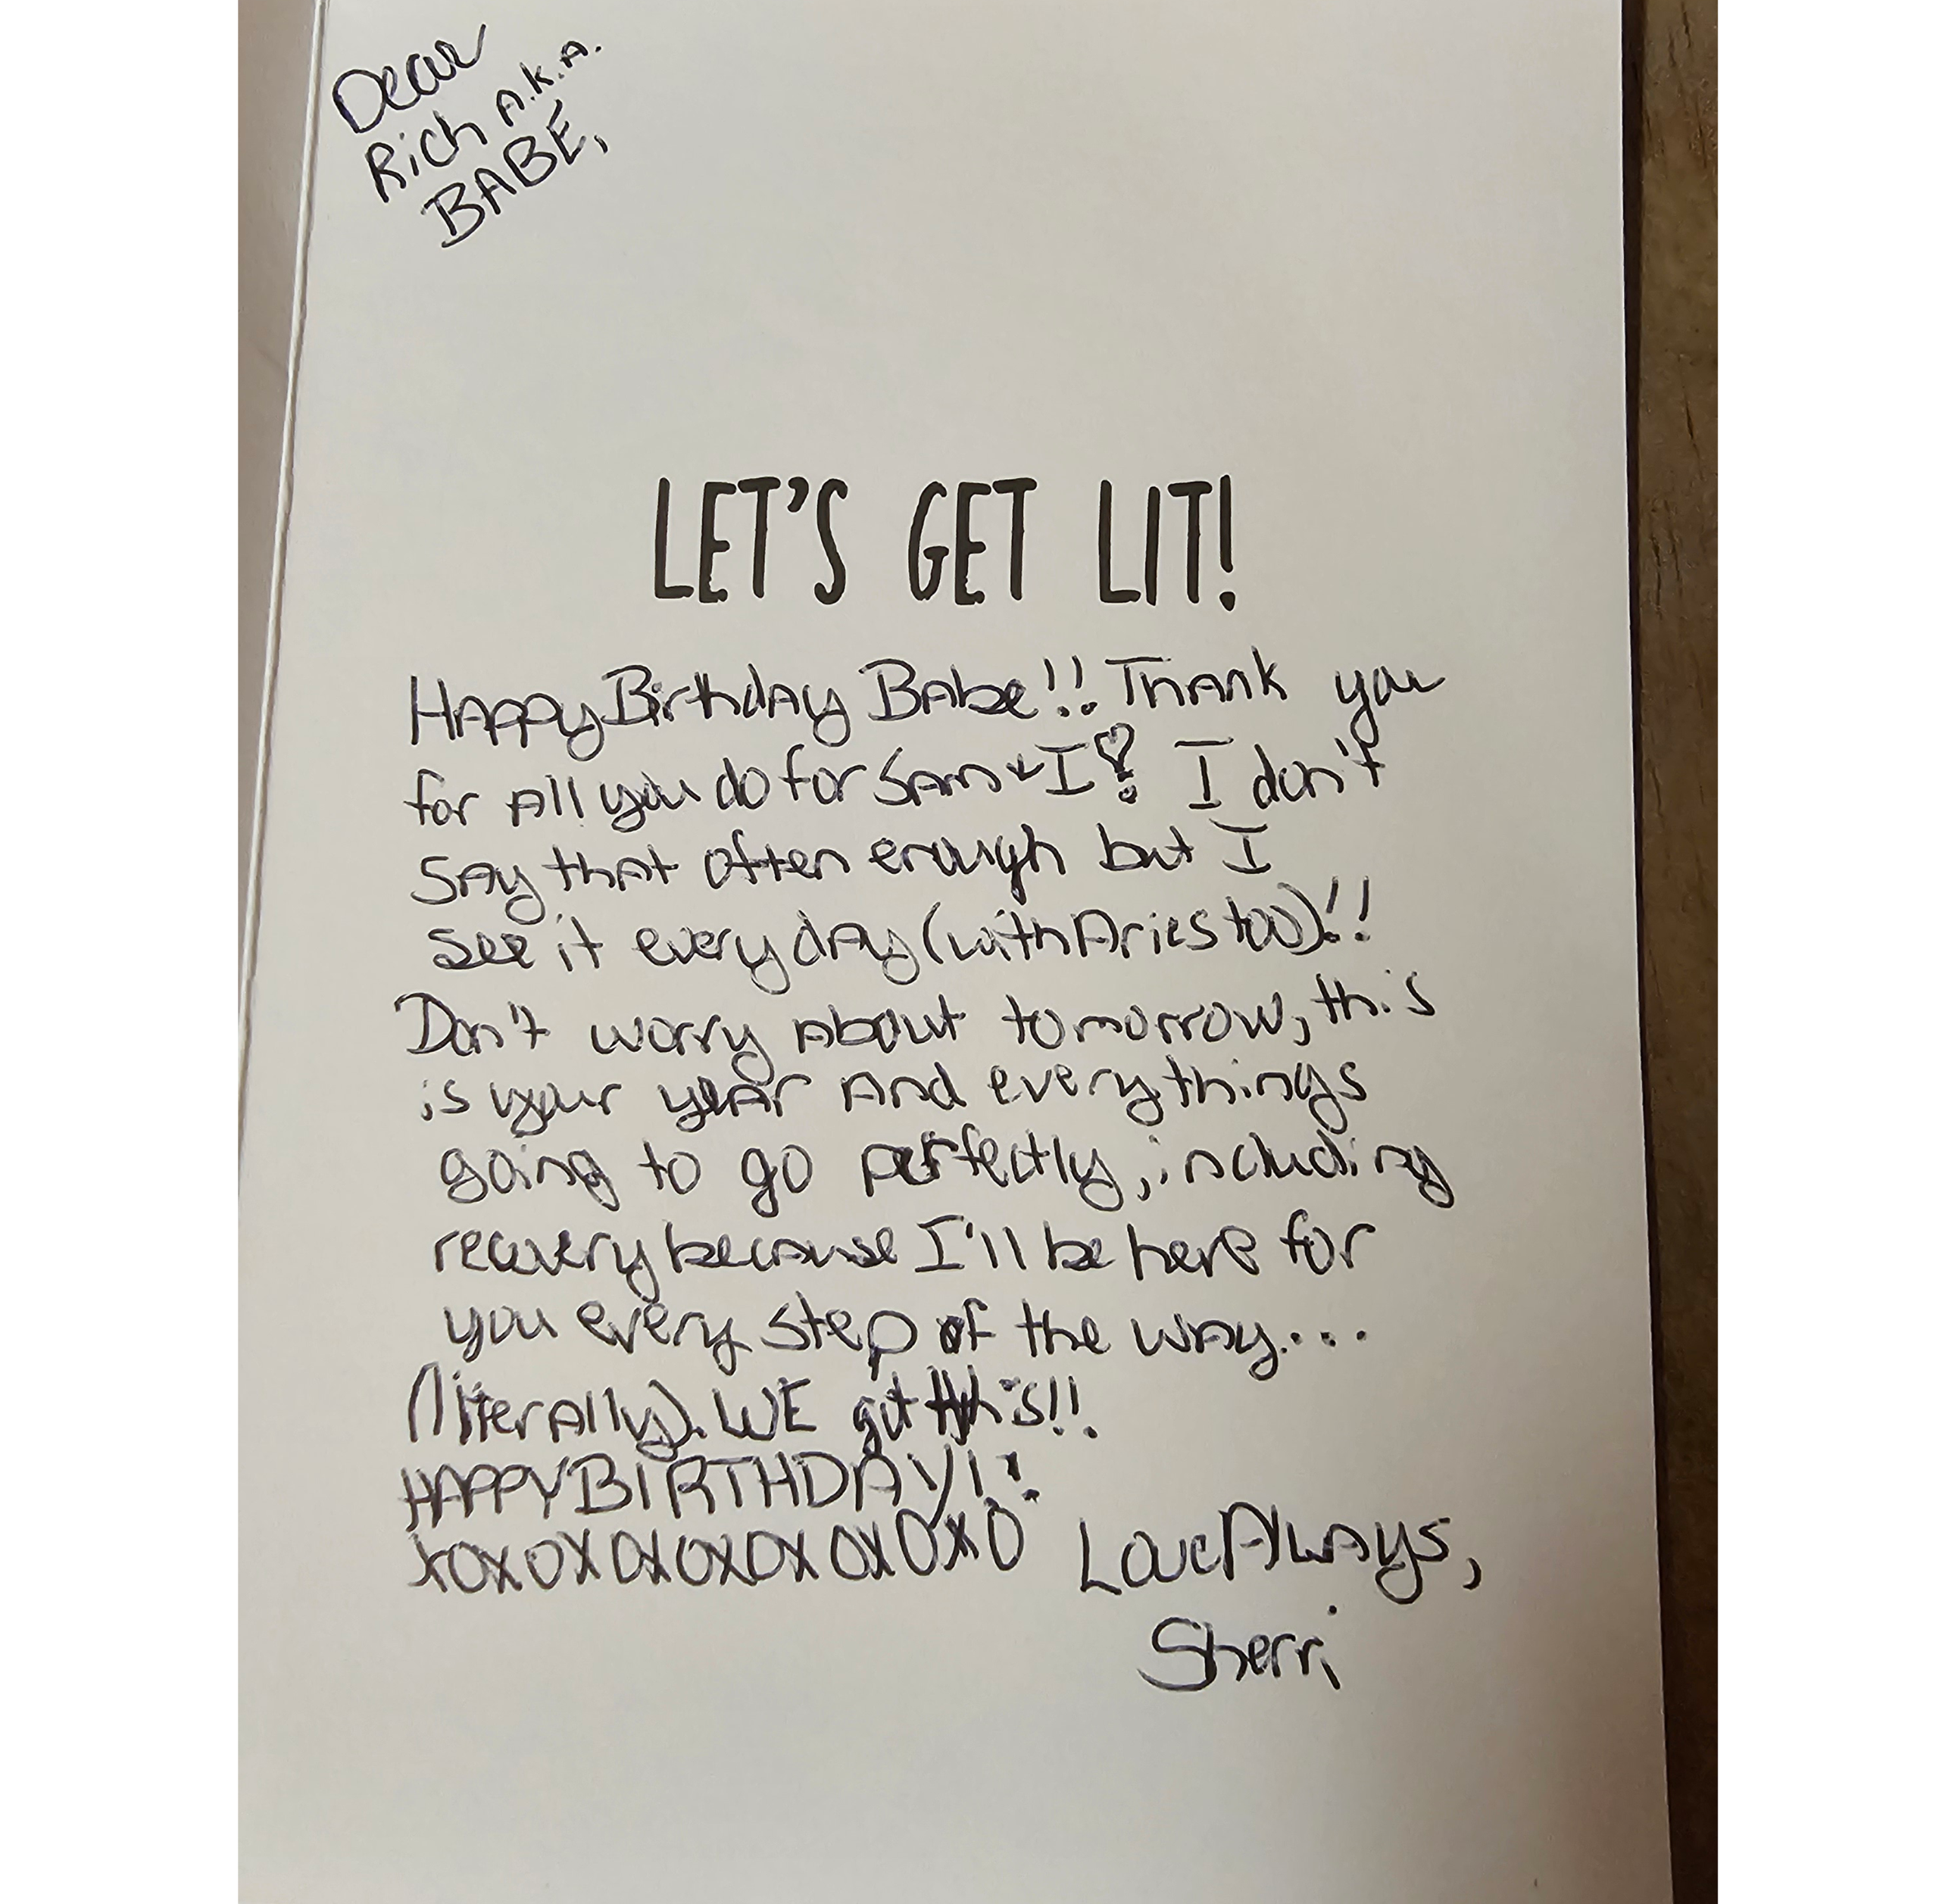 Dear
Rich A.K.A.
BABE,
LET'S GET LIT!
Happy Birthday Babe!! Thank you
for all you do for Sam + I! I don't
say that often enough but I
see it every day (with Aries too)!!
Don't worry about tomorrow, this
is your year and everythings
going to go perfectly, including
recovery because I'll be here for
you every step of the way...
(literally). WE got this!!
HAPPY BIRTHDAY!!
XOXOXOXOXOXOXOXO Love Always,
Sherri